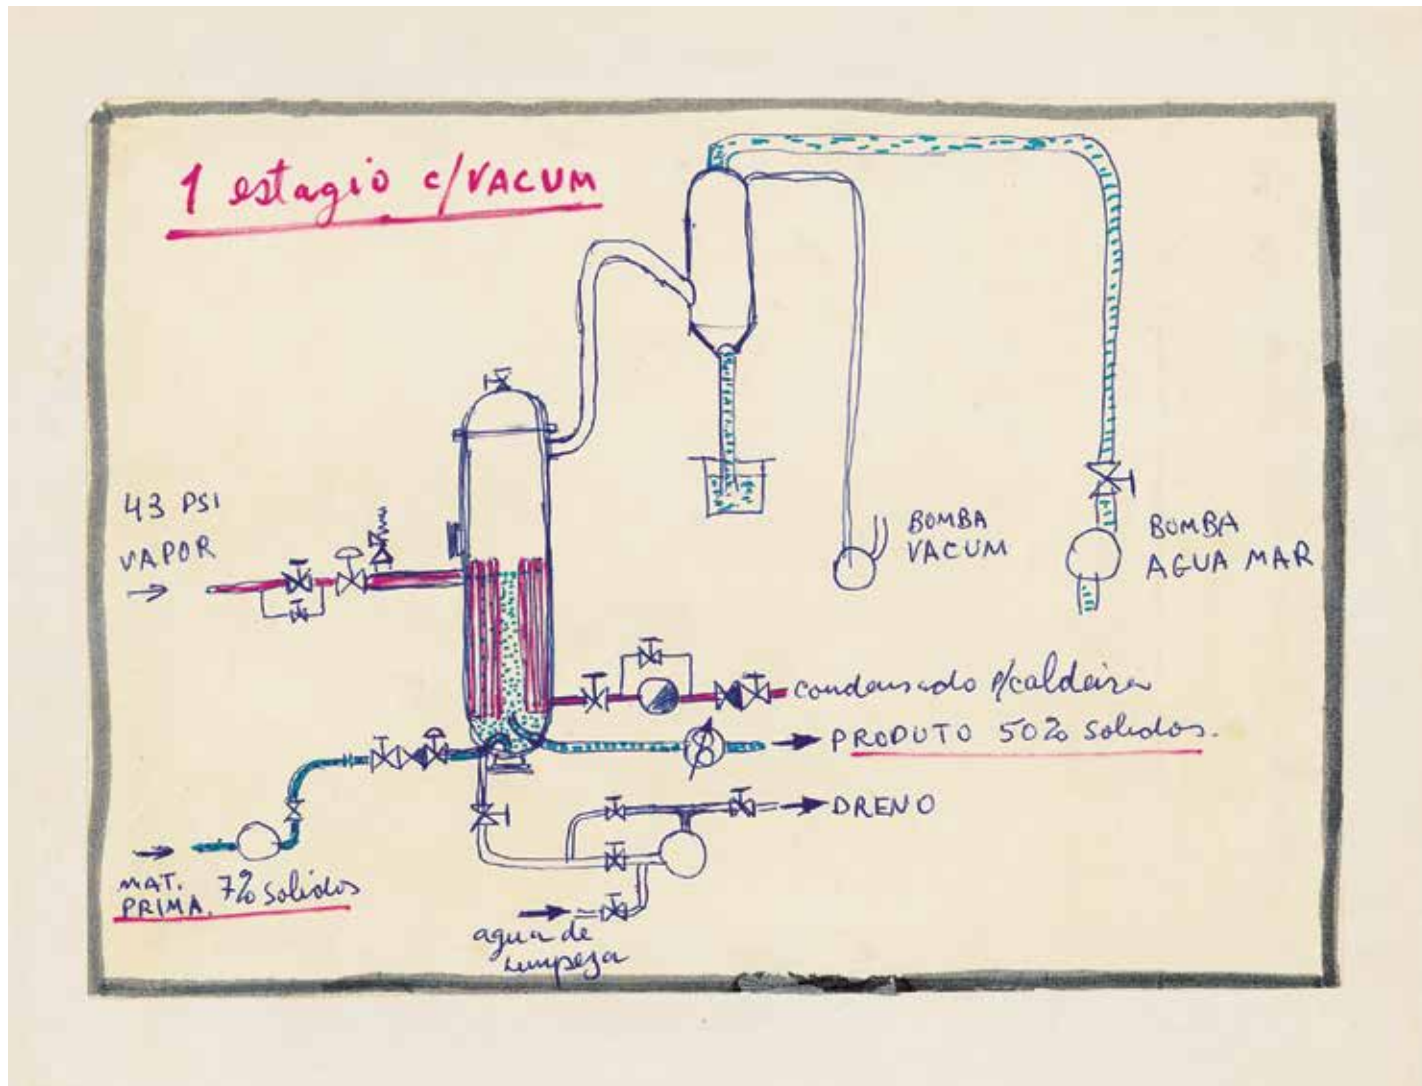 1 estagio c/VACUM
43 PSI
VAPOR
BOMBA
VACUM
BOMBA
AGUA MAR
condensado p/caldeira
PRODUTO 50% solidos.
DRENO
MAT.
PRIMA. 7% solidos
agua de
limpeza